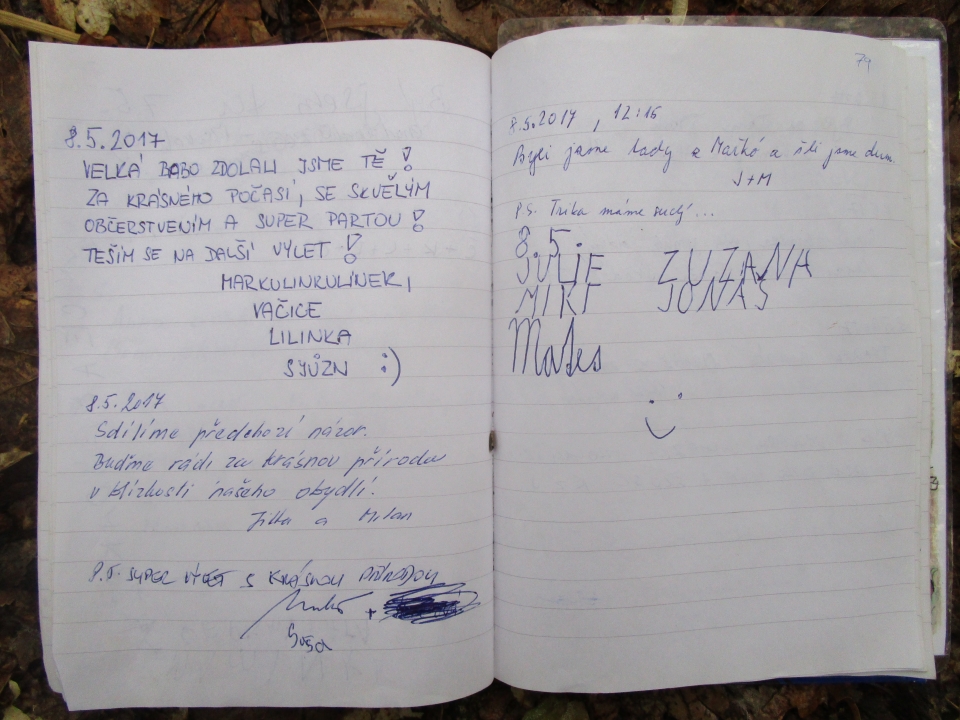 8.5.2017
VELKÁ BABO ZDOLALI JSME TĚ!
ZA KRÁSNÉHO POČASÍ, SE SKVĚLÝM
OBČERSTVENÍM A SUPER PARTOU!
TEŠÍM SE NA DALŠÍ VÝLET!
MARKULINKULÍNEK,
VAČICE
LILINKA
SYŮZN :)
8.5.2017
Sdílíme předchozí názor.
Buďme rádi za krásnou přírodu
v blízkosti našeho obydlí.
Jitka a Milan
P.S. SUPER VÝLET S KRÁSNOU PŘÍRODOU
+
74
8.5.2017, 12:16
Byli jsme tady a a šli jsme
J+M
P.S. Trika máme suchý...
8.5.
JULIE ZUZANA
MIKE JONÁŠ
Mates